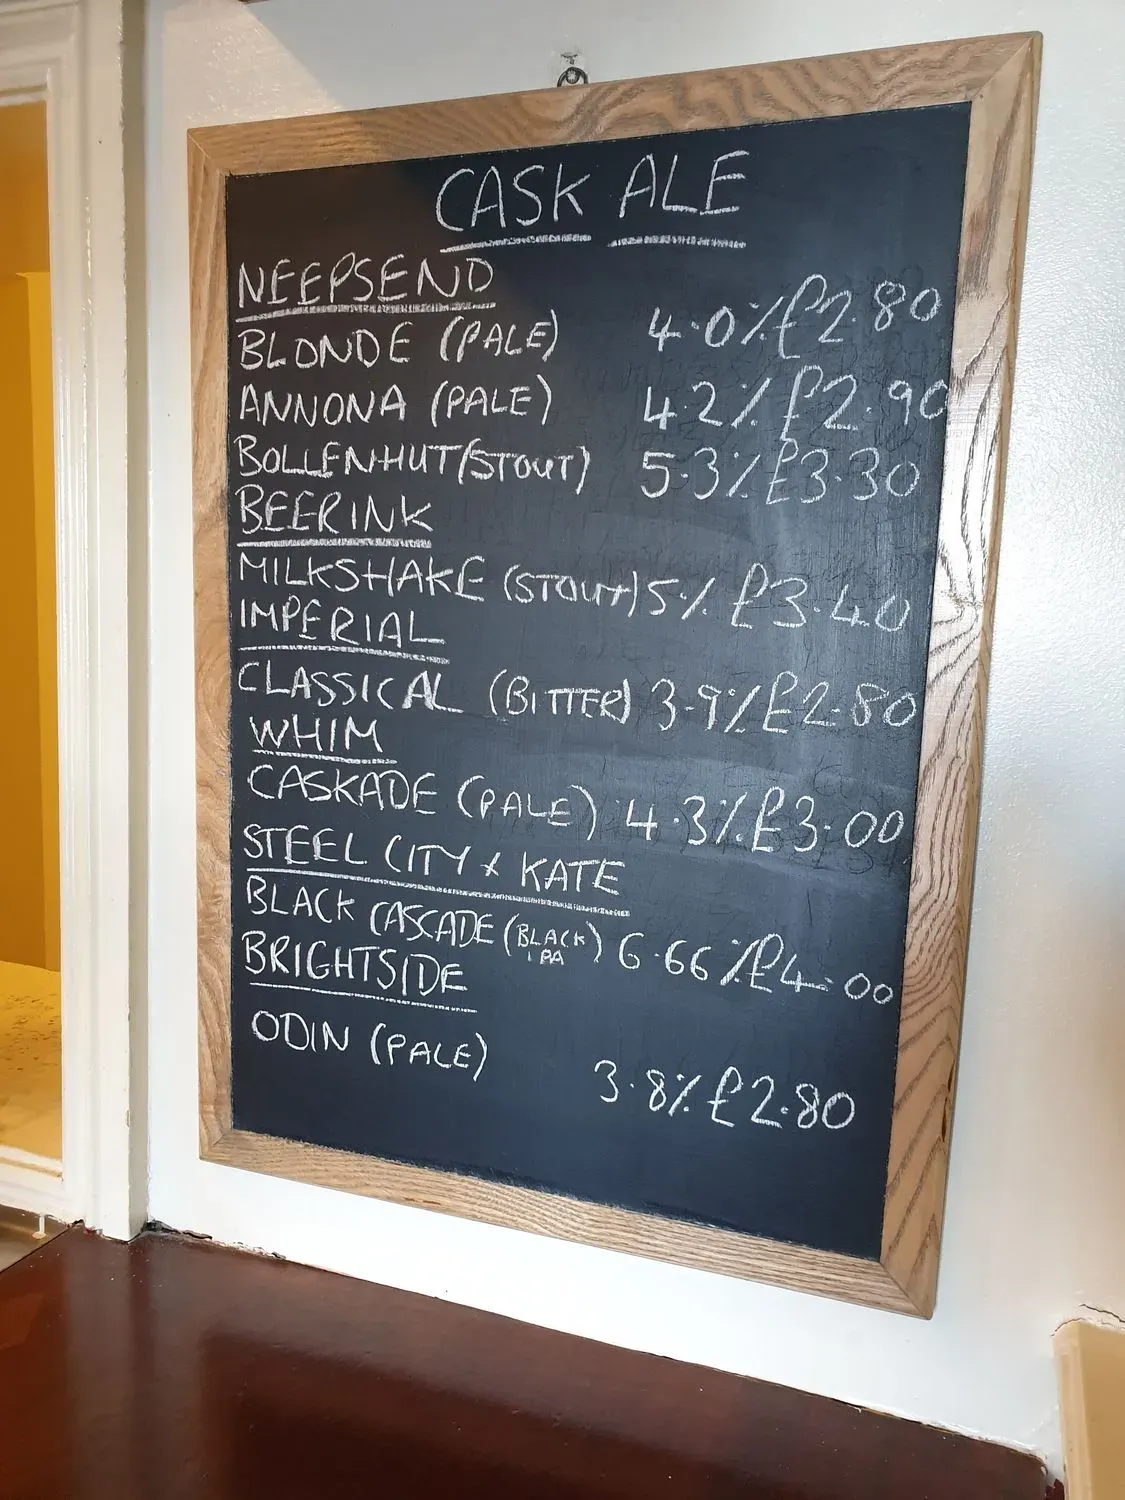 CASK ALE
NEEPSEND
BLONDE (PALE) 4.0% £2.80
ANNONA (PALE) 4.2% £2.90
BOLLENHUT (STOUT) 5.3% £3.30
BEER INK
MILKSHAKE (STOUT) 5% £3.40
IMPERIAL
CLASSICAL (BITTER) 3.9% £2.80
WHIM
CASKADE (PALE) 4.3% £3.00
STEEL CITY x KATE
BLACK CASCADE (BLACK IPA) 6.66% £4.00
BRIGHTSIDE
ODIN (PALE) 3.8% £2.80